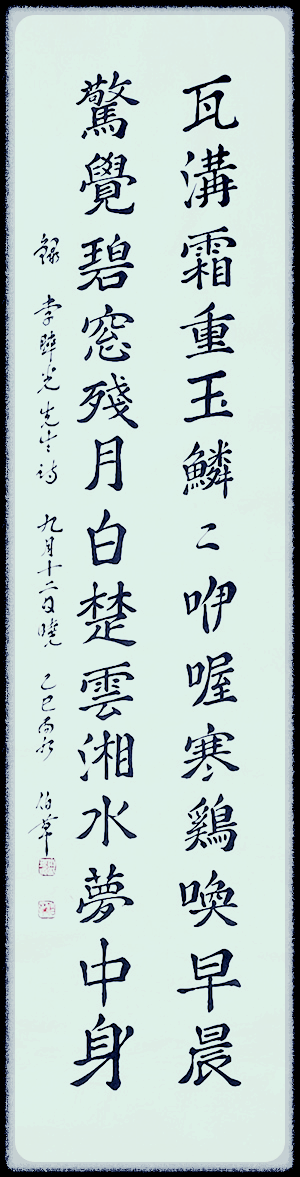 瓦溝霜重玉鱗〻咿喔寒鷄喚早晨
驚覺碧窓殘月白楚雲湘水夢中身
錄 李晬光先生詩 九月十二日曉 乙巳